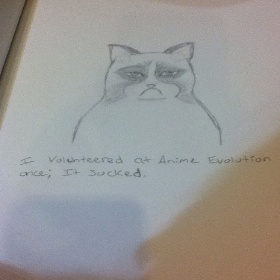 I Volunteered at Anime Evolution
once; It sucked.